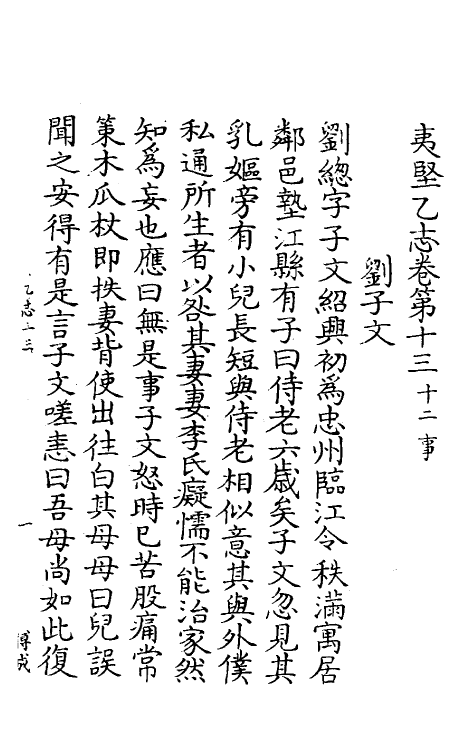 夷堅乙志卷第十三 十二事
劉子文
劉總字子文紹興初爲忠州臨江令秩滿寓居
鄰邑墊江縣有子曰侍老六歲矣子文忽見其
乳嫗旁有小兒長短與侍老相似意其與外僕
私通所生者以咎其妻妻李氏癡懦不能治家然
知爲妄也應曰無是事子文怒時已苦股痛常
策木瓜杖即抶妻背使出往白其母母曰兒誤
聞之安得有是言子文嗟恚曰吾母尚如此復
乙志十三
一
博成